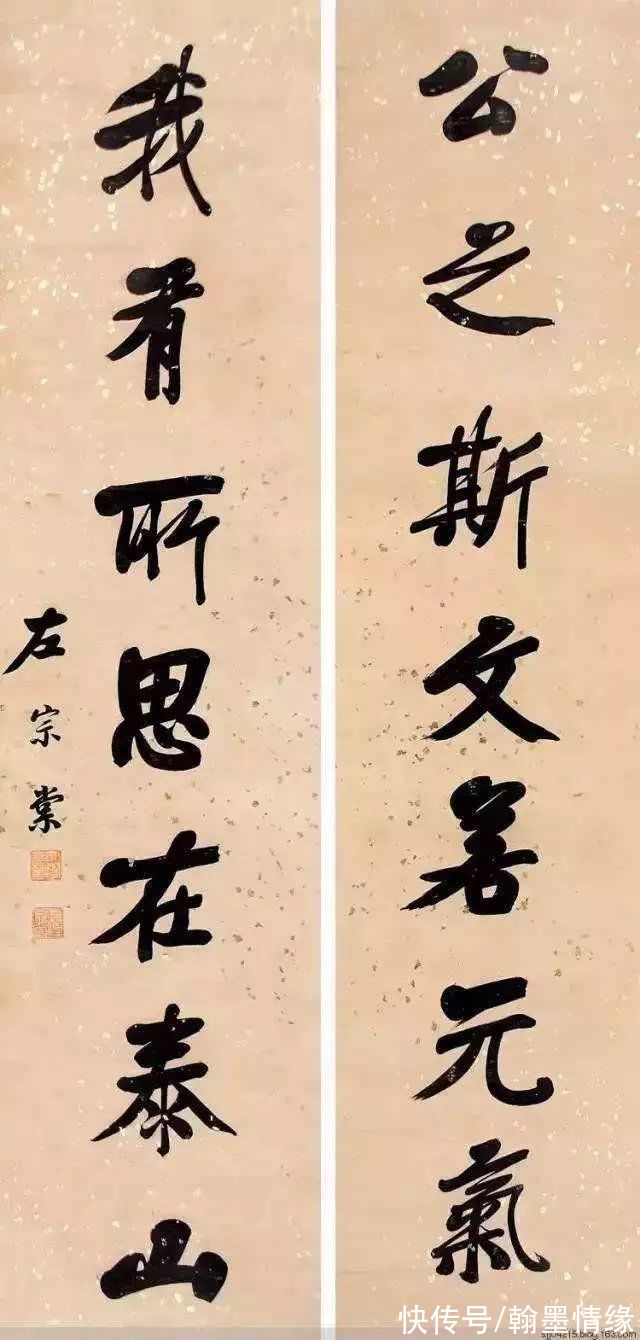 公之斯文若元氣
我有所思在泰山
左宗棠
快传号/翰墨情缘